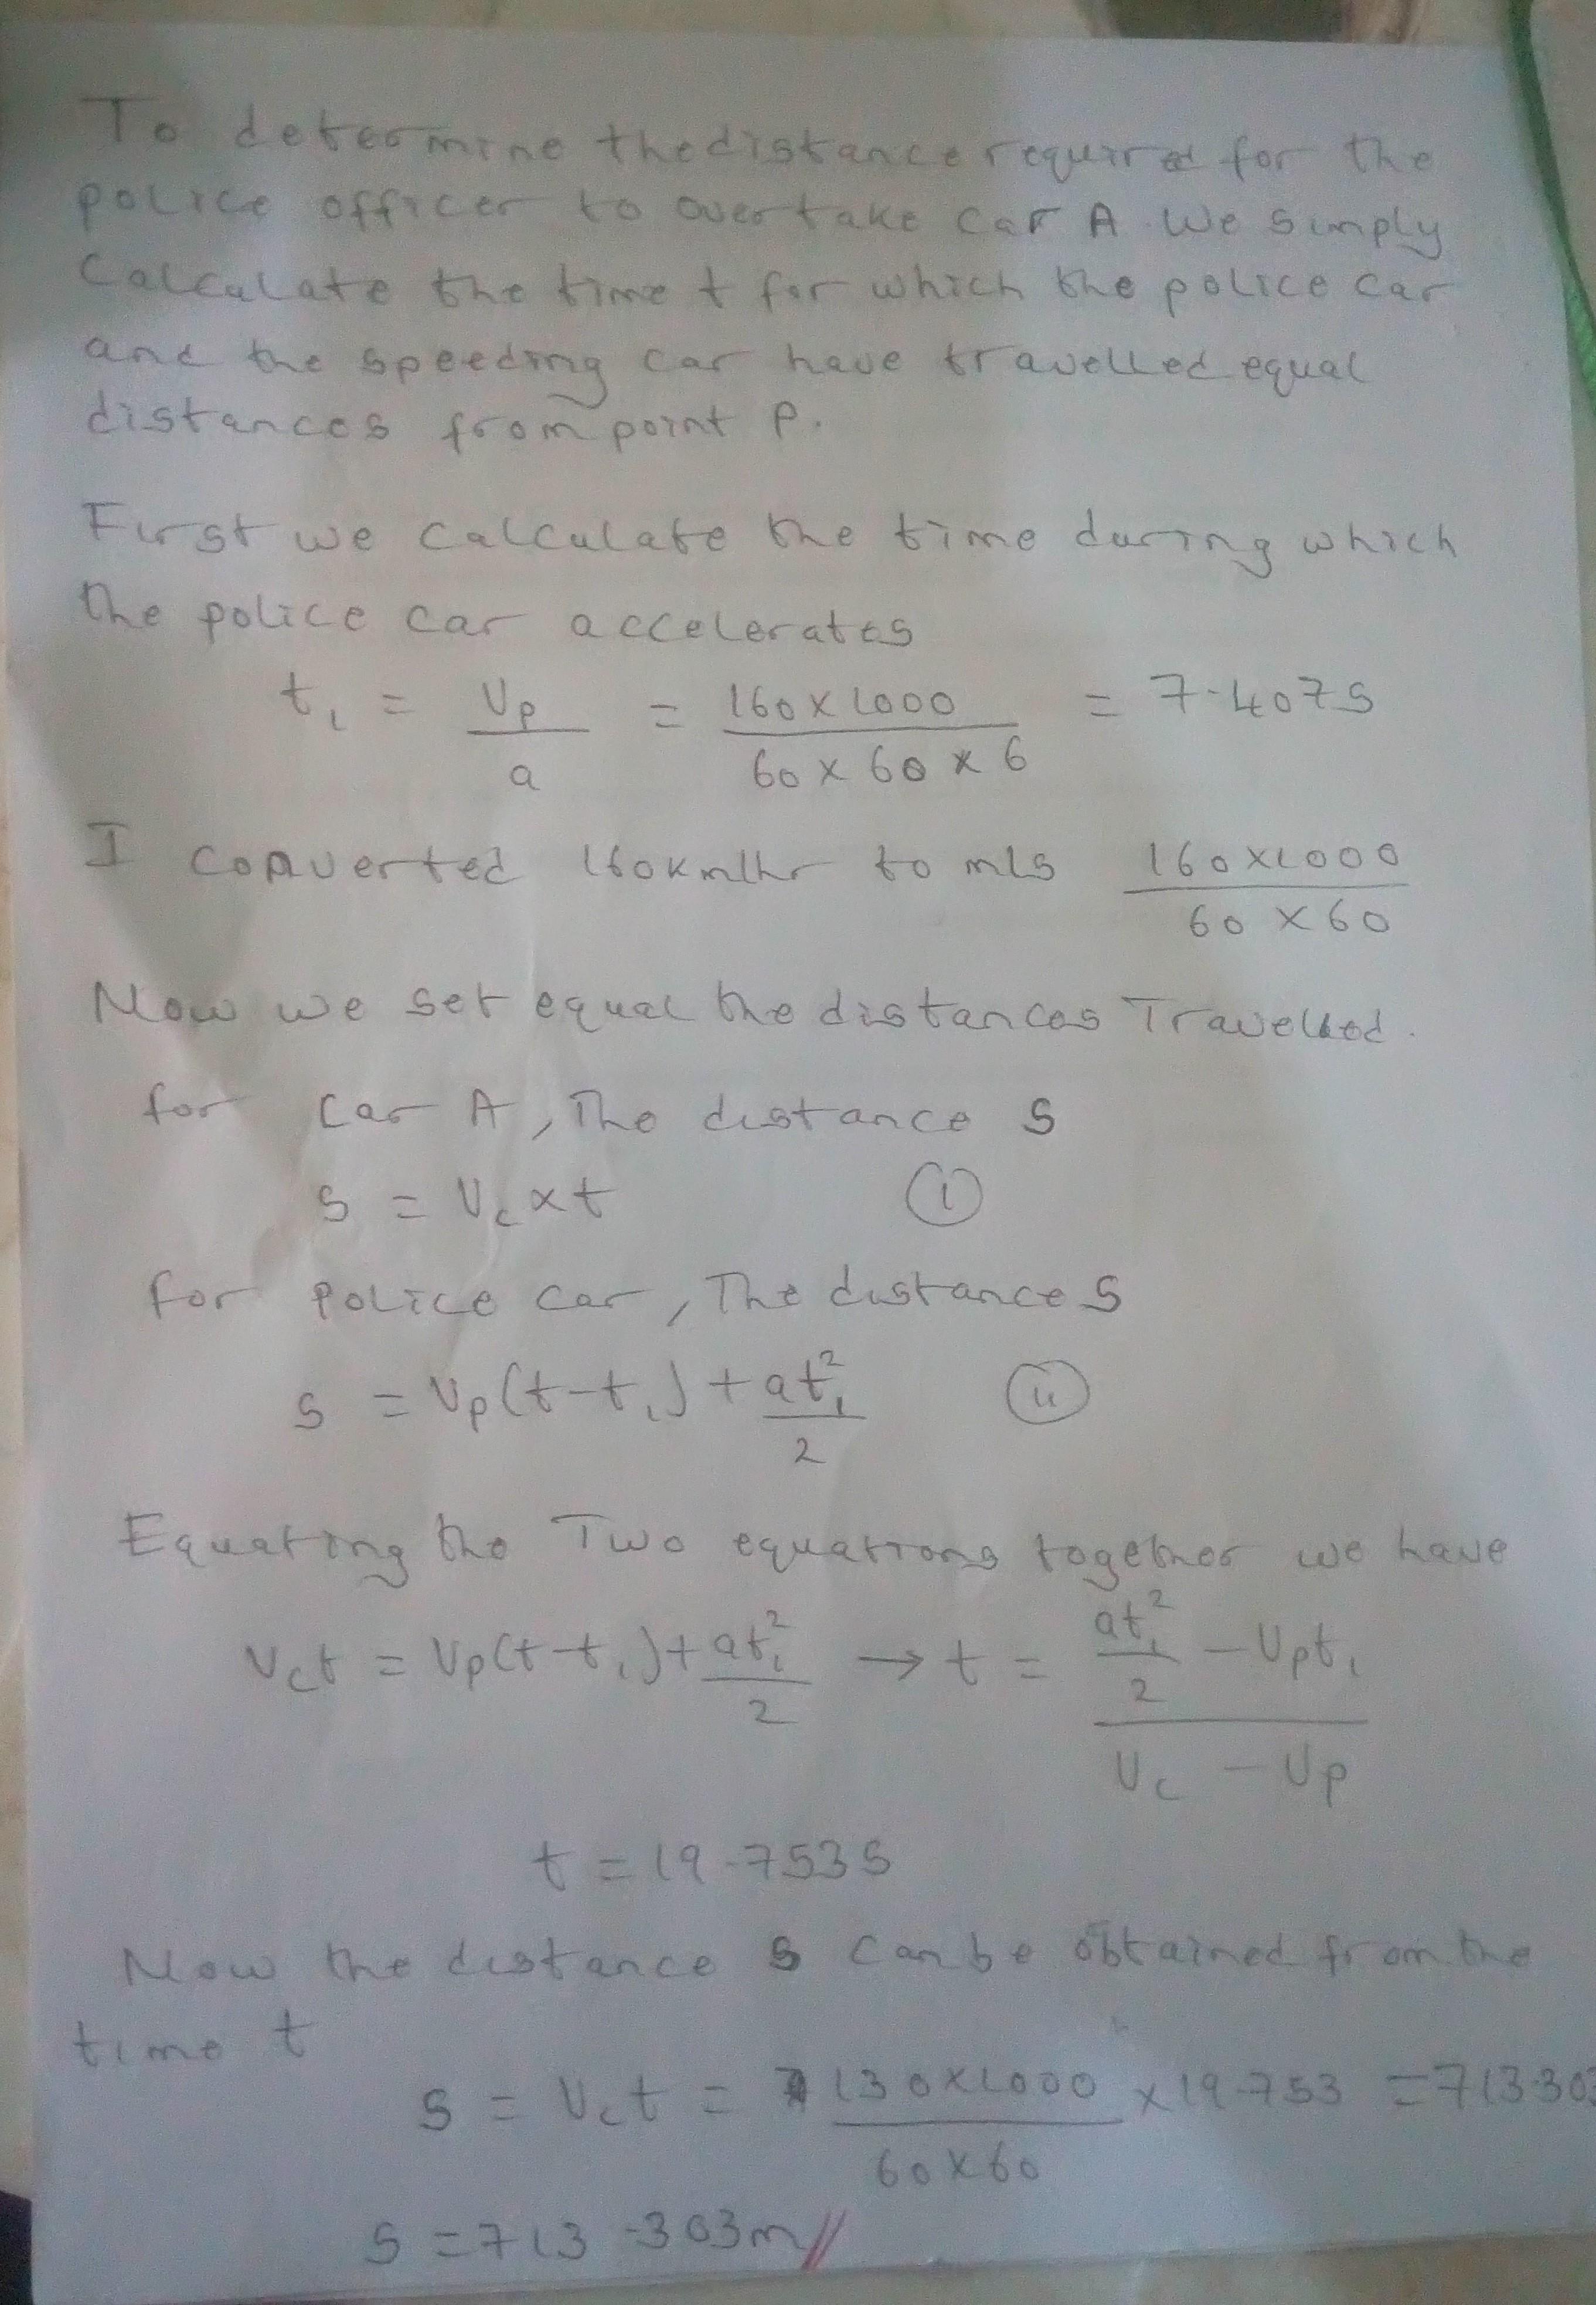 To determine the distance required for the
police officer to overtake car A. We simply
Calculate the time t for which the police car
and the speeding car have travelled equal
distances from point P.
First we calculate the time during which
the police car accelerates
t₁ = Vp/a = 160 x 1000/60 x 60 x 6 = 7.407s
I converted 160km/hr to m/s 160x1000/60 x 60
Now we set equal the distances Travelled.
for Car A, The distance S
S = Vc x t (i)
for police car, The distance S
S = Vp(t-t₁) + at₁²/2 (ii)
Equating the Two equations together we have
Vct = Vp(t-t₁) + at₁²/2 → t = (at₁²/2 - Vpt₁)/(Vc - Vp)
t = 19.753s
Now the distance S can be obtained from the
time t
S = Vct = 130x1000/60x60 x 19.753 = 713.303
S = 713.303m//